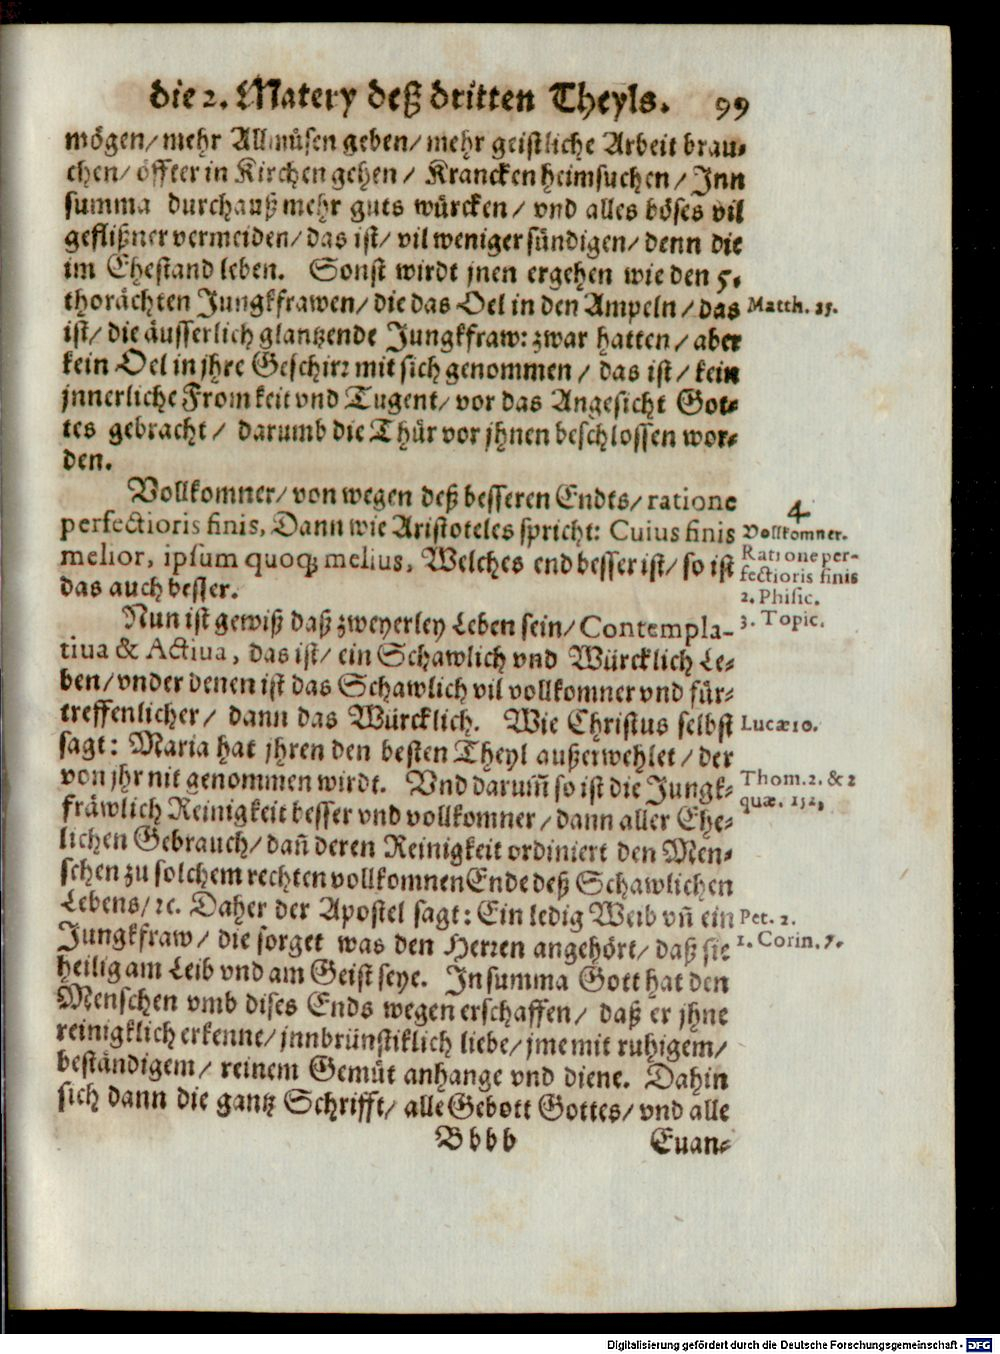 die 2. Matery deß dritten Theyls. 99
mögen/ mehr Allmůsen geben/ mehr geistliche Arbeit brau-
chen/ öffter in Kirchen gehen/ Krancken heimsuchen/ Inn
summa durchauß mehr guts würcken/ vnd alles böses vil
geflißner vermeiden/ das ist/ vil weniger sündigen/ denn die
im Ehestand leben. Sonst wirdt jnen ergehen wie den 5.
thorächten Jungkfrawen/ die das Oel in den Ampeln/ das
Matth. 25.
ist/ die äusserlich glantzende Jungkfraw: zwar hatten/ aber
kein Oel in jhre Geschirr mit sich genommen/ das ist/ kein
jnnerliche Fromkeit vnd Tugent/ vor das Angesicht Got-
tes gebracht/ darumb die Thür vor jhnen beschlossen wor-
den.
Vollkomner/ von wegen deß besseren Endts/ ratione
4
perfectioris finis, Dann wie Aristoteles spricht: Cuius finis
Vollkomner.
melior, ipsum quoq; melius, Welches end besser ist/ so ist
Ratione per-
fectioris finis
das auch besser.
2. Phisic.
3. Topic.
Nun ist gewiß daß zweyerley Leben sein/ Contempla-
tiua & Actiua, das ist/ ein Schawlich vnd Würcklich Le-
ben/ vnder denen ist das Schawlich vil vollkomner vnd für-
treffenlicher/ dann das Würcklich. Wie Christus selbst
Lucæ 10.
sagt: Maria hat jhren den besten Theyl außerwehlet/ der
von jhr nit genommen wirdt. Vnd darum̃ so ist die Jungk-
Thom. 2. & 2
quæ. 152,
fräwlich Reinigkeit besser vnd vollkomner/ dann aller Ehe-
lichen Gebrauch/ dañ deren Reinigkeit ordiniert den Men-
schen zu solchem rechten vollkomnen Ende deß Schawlichen
Lebens/ ꝛc. Daher der Apostel sagt: Ein ledig Weib vñ ein
Pet. 2.
Jungkfraw/ die sorget was den Herren angehört/ daß sie
1. Corin. 7.
heilig am Leib vnd am Geist seye. In summa Gott hat den
Menschen vmb dises Ends wegen erschaffen/ daß er jhne
reinigklich erkenne/ jnnbrünstiklich liebe/ jme mit ruhigem/
beständigem/ reinem Gemůt anhange vnd diene. Dahin
sich dann die gantz Schrifft/ alle Gebott Gottes/ vnd alle
Bbbb Euan-
Digitalisierung gefördert durch die Deutsche Forschungsgemeinschaft - DFG